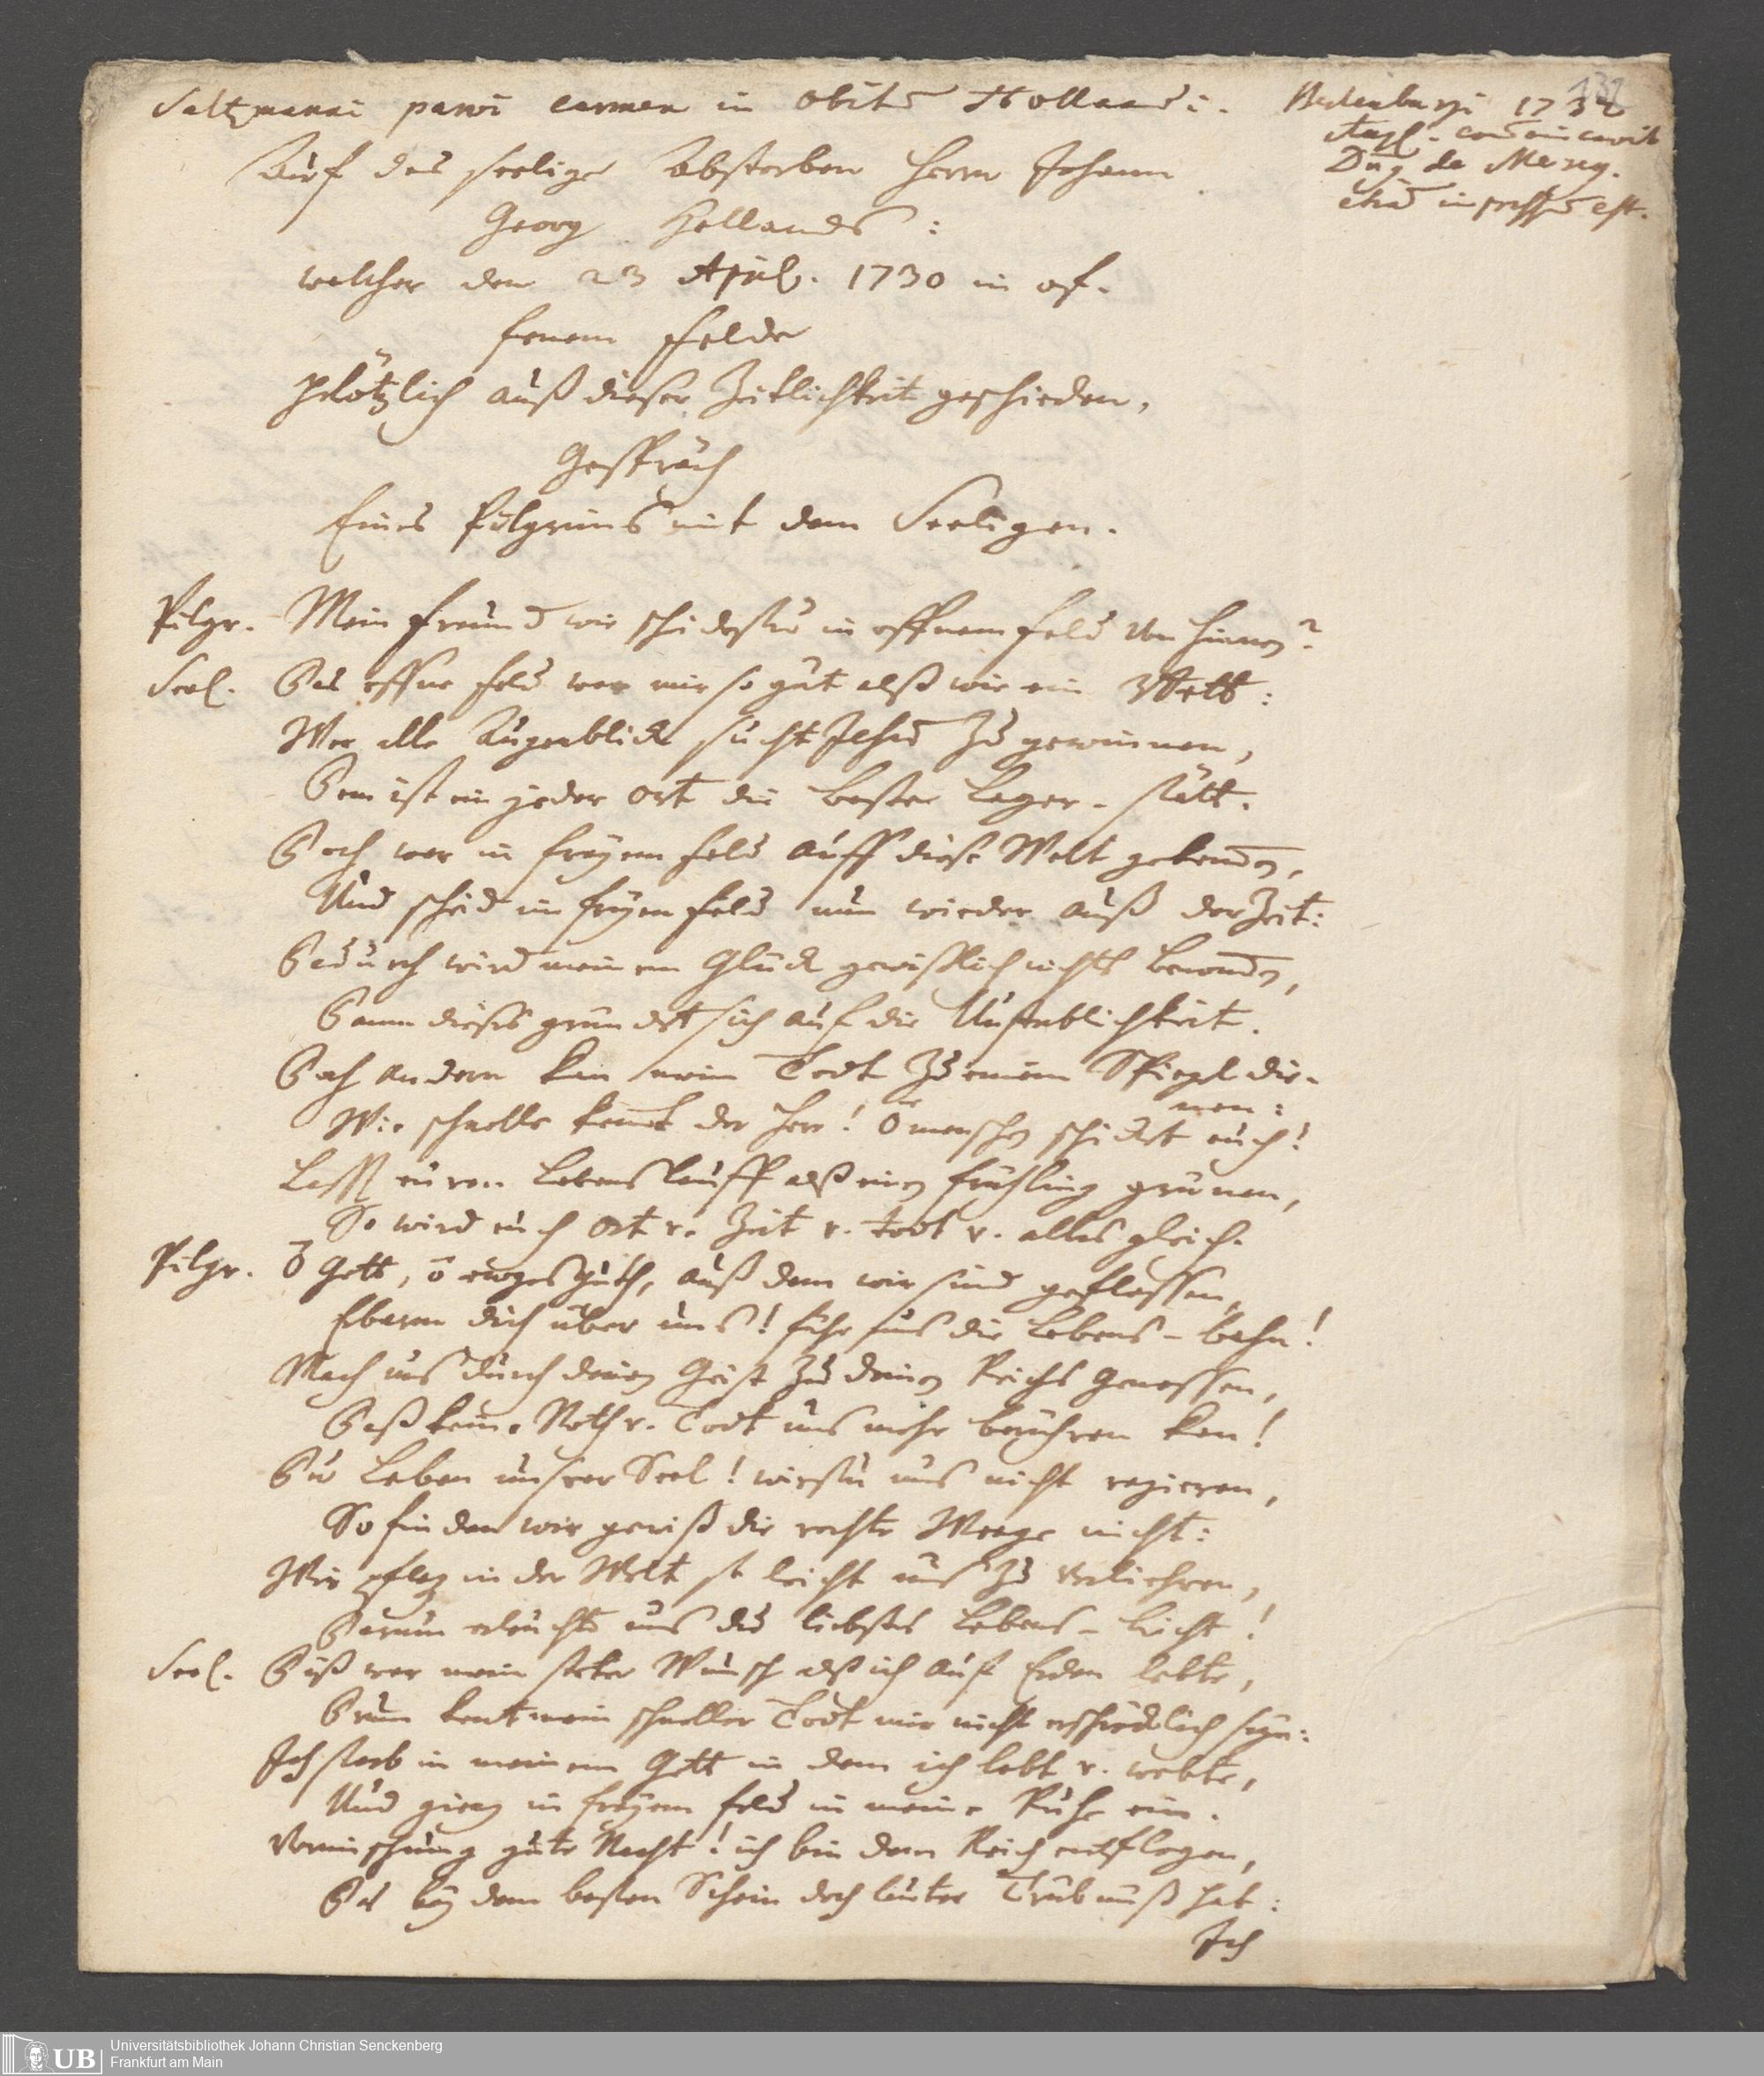 132
Saltzmanni parvi carmen in obitũ Hollandi.
Berleburgi 1732
Aug. com̄unicavit
Dn̄ de Marsay.
etiā impressū est.
Auf das seelige Absterben Herrn Johann
Georg Hollands:
welcher den 23 April. 1730 in of-
fenem Felde
plötzlich auß dieser Zeitlichkeit geschieden,
Gespräch
Eines Pilgrims mit dem Seeligen.
Pilgr. Mein Freund wie schiedestu in offnem Feld von hinnen?
Seel. Das offne Feld war mir so gut alß wie ein Bett:
Wer alle Augenblick sucht Jesum zu gewinnen,
Dem ist ein jeder Ort die beste Lager-stätt.
Doch war in freyem Feld auff diese Welt gekommen,
Und scheid im freyen Feld nun wieder auß der Zeit:
Dadurch wird meinem Glück gewißlich nichts benommen,
Dann dieses gründet sich auf die Unsterblichkeit.
Doch andern kan mein Todt zu einem Spiegel die-
nen:
Wie schnelle kommt der Herr! O menschen schicket euch!
Lasst euren Lebenslauff alß einen Frühling grünen,
So wird euch Ort u. Zeit u. Todt u. alles gleich.
Pilgr. O Gott, o ewges Guth, auß dem wir sind geflossen,
Erbarm dich über uns! führ uns die Lebens-bahn!
Mach uns durch deinen Geist zu deinen Reichs Genossen,
Daß keine Noth u. Todt uns mehr berühren kan!
Du Leben unsrer Seel! wirstu uns nicht regieren,
So finden wir gewiß die rechte Weege nicht:
Wir pflegen in der Welt so leicht uns zu verliehren,
Darum erleuchte uns du liebstes Lebens-Licht!
Seel. Diß war mein steter Wunsch alß ich auf Erden lebte,
Drum kont mein schneller Todt mir nicht erschrecklich seyn:
Ich starb in meinem Gott in dem ich lebt u. webte,
Und gieng in freyem Feld in meine Ruhe ein.
Vermischung gute Nacht! ich bin dem Reich entflogen,
Das bey dem besten Schein doch lauter Trübnuß hat:
Ich
UB
Universitätsbibliothek Johann Christian Senckenberg
Frankfurt am Main